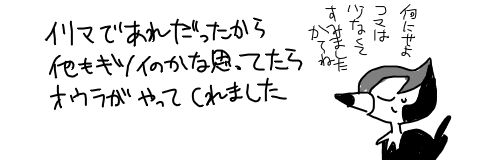 イリマであれだったから
他もギソイのかな思ってたら
オウラがやってくれました
何にせよ
コマは
ツなくて
すみました
かてね